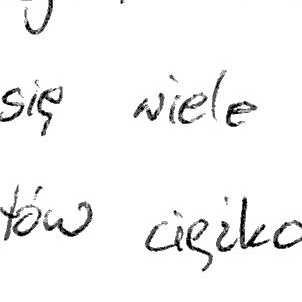 się wiele
tów ciężko